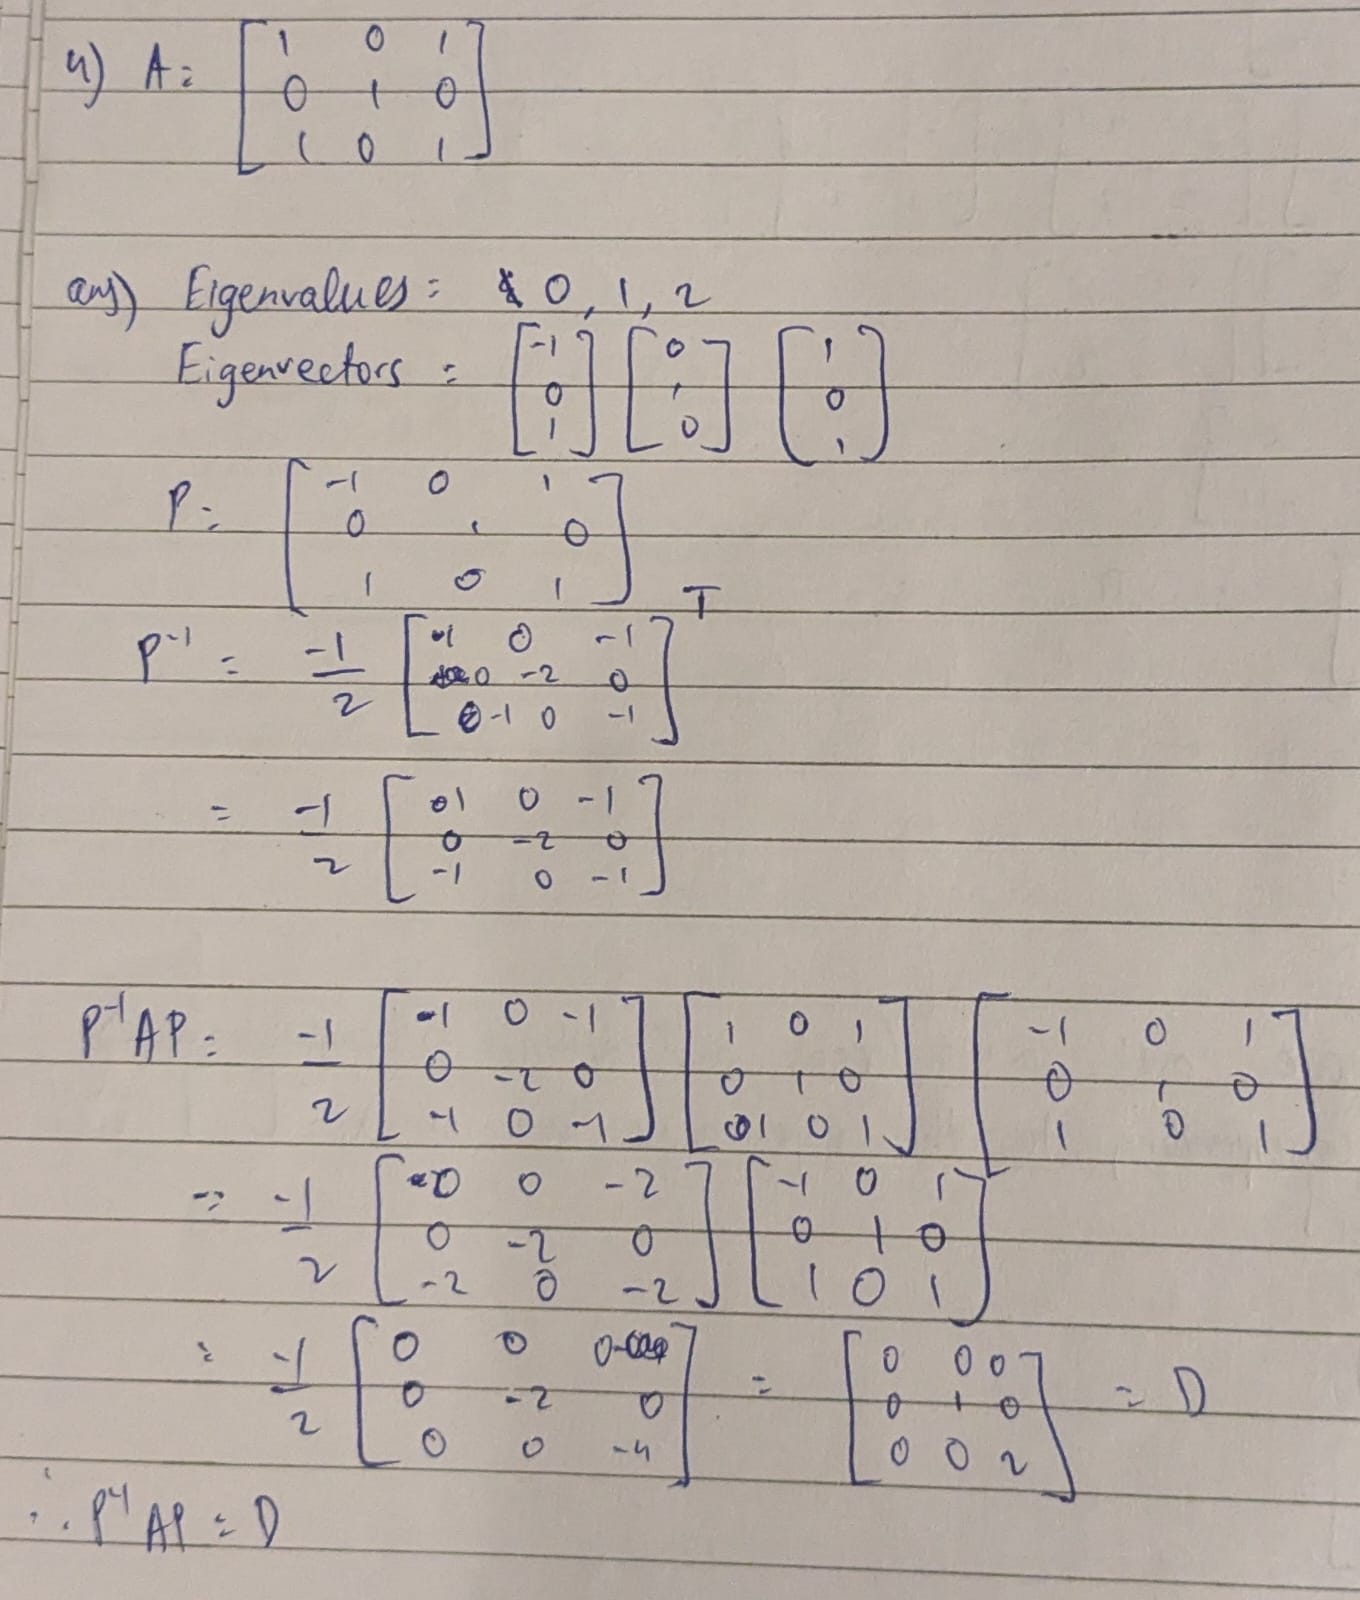 4) A = [1 0 1
0 1 0
1 0 1]
ans) Eigenvalues = 0, 1, 2
Eigenvectors = [-1 0 1] [0 1 0] [1 0 1]
P = [-1 0 1
0 1 0
1 0 1]
P⁻¹ = -1/2 [1 0 -1
0 -2 0
-1 0 -1]ᵀ
= -1/2 [1 0 -1
0 -2 0
-1 0 -1]
P⁻¹AP = -1/2 [1 0 -1
0 -2 0
-1 0 -1] [1 0 1
0 1 0
1 0 1] [-1 0 1
0 1 0
1 0 1]
= -1/2 [0 0 -2
0 -2 0
-2 0 -2] [-1 0 1
0 1 0
1 0 1]
= -1/2 [0 0 0
0 -2 0
0 0 -4] = [0 0 0
0 1 0
0 0 2] = D
∴ P⁻¹AP = D